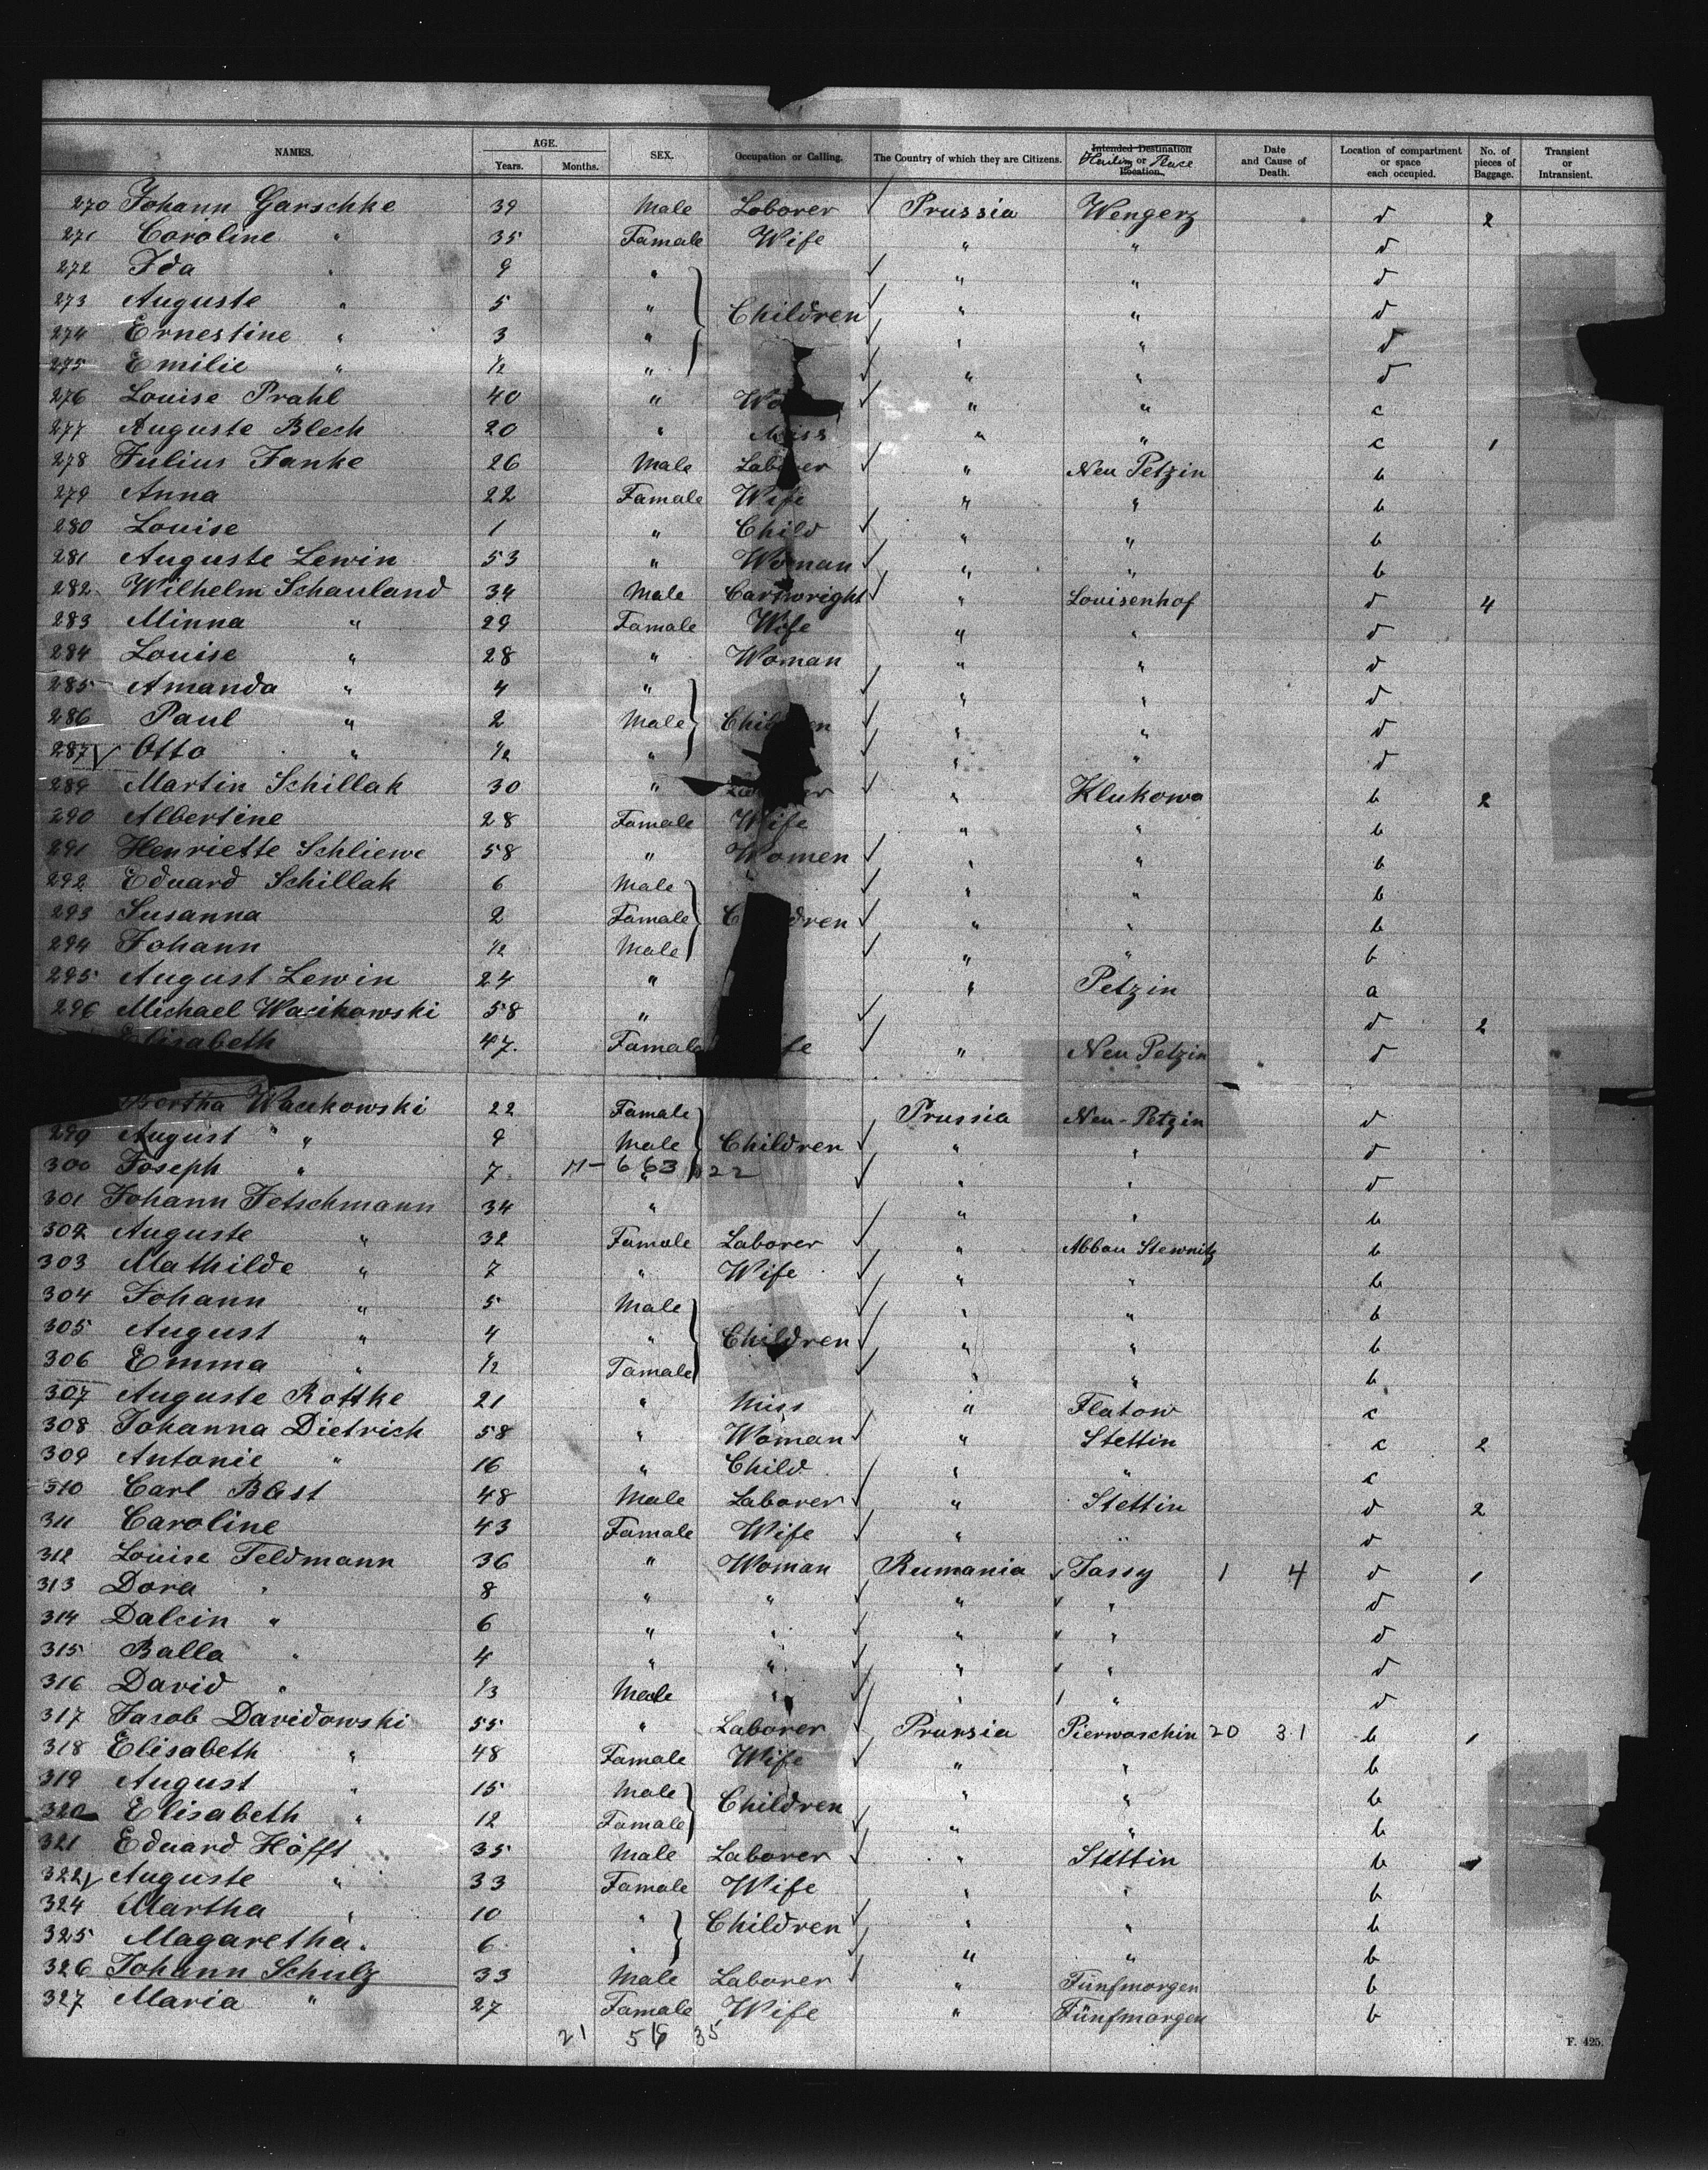 NAMES. AGE. Years. Months. SEX. Occupation or Calling. The Country of which they are Citizens. Intended Destination or Location. Place Date and Cause of Death. Location of compartment or space each occupied. No. of pieces of Baggage. Transient or Intransient.
270 Johann Garschke 39 Male Laborer ✓ Prussia Wengerz d 2
271 Caroline " 35 Famale Wife " " d
272 Ida " 9 " ✓ " " d
273 Auguste " 5 " Children ✓ " " d
274 Ernestine " 3 " ✓ " " d
275 Emilie " 1/2 " ✓ " " d
276 Louise Prahl 40 " ✓ " " c
277 Auguste Blech 20 " Miss " " c 1
278 Julius Janke 26 Male Laborer ✓ " Neu Petzin b
279 Anna 22 Famale Wife " " b
280 Louise 1 " Child ✓ " " b
281 Auguste Lewin 53 " Woman ✓ " " b
282 Wilhelm Schauland 34 Male Cartwright ✓ " Louisenhof d 4
283 Minna " 29 Famale Wife " " d
284 Louise " 28 " Woman " " d
285 Amanda " 4 " ✓ " " d
286 Paul " 2 Male Children ✓ " " d
287 ✓ Otto " 1/2 " ✓ " " d
289 Martin Schillak 30 " ✓ " Klukowo b 2
290 Albertine 28 Famale Wife " " b
291 Henriette Schliewe 58 " Women ✓ " " b
292 Eduard Schillak 6 Male ✓ " " b
293 Susanna 2 Famale Children ✓ " " b
294 Johann 1/2 Male ✓ " " b
295 August Lewin 24 " " Petzin a
296 Michael Wacikowski 58 " ✓ d 2
Elisabeth 47. Famale ✓ " Neu Petzin d
Bertha Wacikowski 22 Famale Prussia Neu-Petzin d
299 August " " 9 Male Children ✓ " " d
300 Joseph " 7. 11-663 " 22 ✓ " " d
301 Johann Jetschmann 34 " " " b
302 Auguste " 32 Famale Laborer ✓ " Abbau Stewnitz b
303 Mathilde " 7 " Wife ✓ " " b
304 Johann " 5 Male ✓ " " b
305 August " 4 " Children ✓ " " b
306 Emma " 1/2 Famale ✓ " " b
307 Auguste Rottke 21 " Miss " Flatow c
308 Johanna Dietrich 58 " Woman ✓ " Stettin c 2
309 Antonie " 16 " Child " " c
310 Carl Bast 48 Male Laborer ✓ " Stettin d 2
311 Caroline 43 Famale Wife ✓ " " d
312 Louise Feldmann 36 " Woman Rumania ✓ Jassy 1 4 d 1
313 Dora " 8 " " ✓ " ✓ " d
314 Dalcin " 6 " " ✓ " ✓ " d
315 Balla " 4 " " ✓ " ✓ " d
316 David " 1/3 Male " ✓ " " d
317 Jacob Davidowski 55 " Laborer ✓ Prussia Pierwoschin 20 31 b 1
318 Elisabeth " 48 Famale Wife ✓ " " b
319 August " 15 Male Children " " b
320 Elisabeth " 12 Famale ✓ " " b
321 Eduard Höfft 35 Male Laborer ✓ " Stettin b
322 ✓ Auguste " 33 Famale Wife " " b
324 Martha " 10 " Children ✓ " " b
325 Magaretha " 6 " ✓ " " b
326 Johann Schulz 33 Male Laborer ✓ " Fünfmorgen b
327 Maria " 27 Famale Wife " Fünfmorgen b
21 35
F. 425.